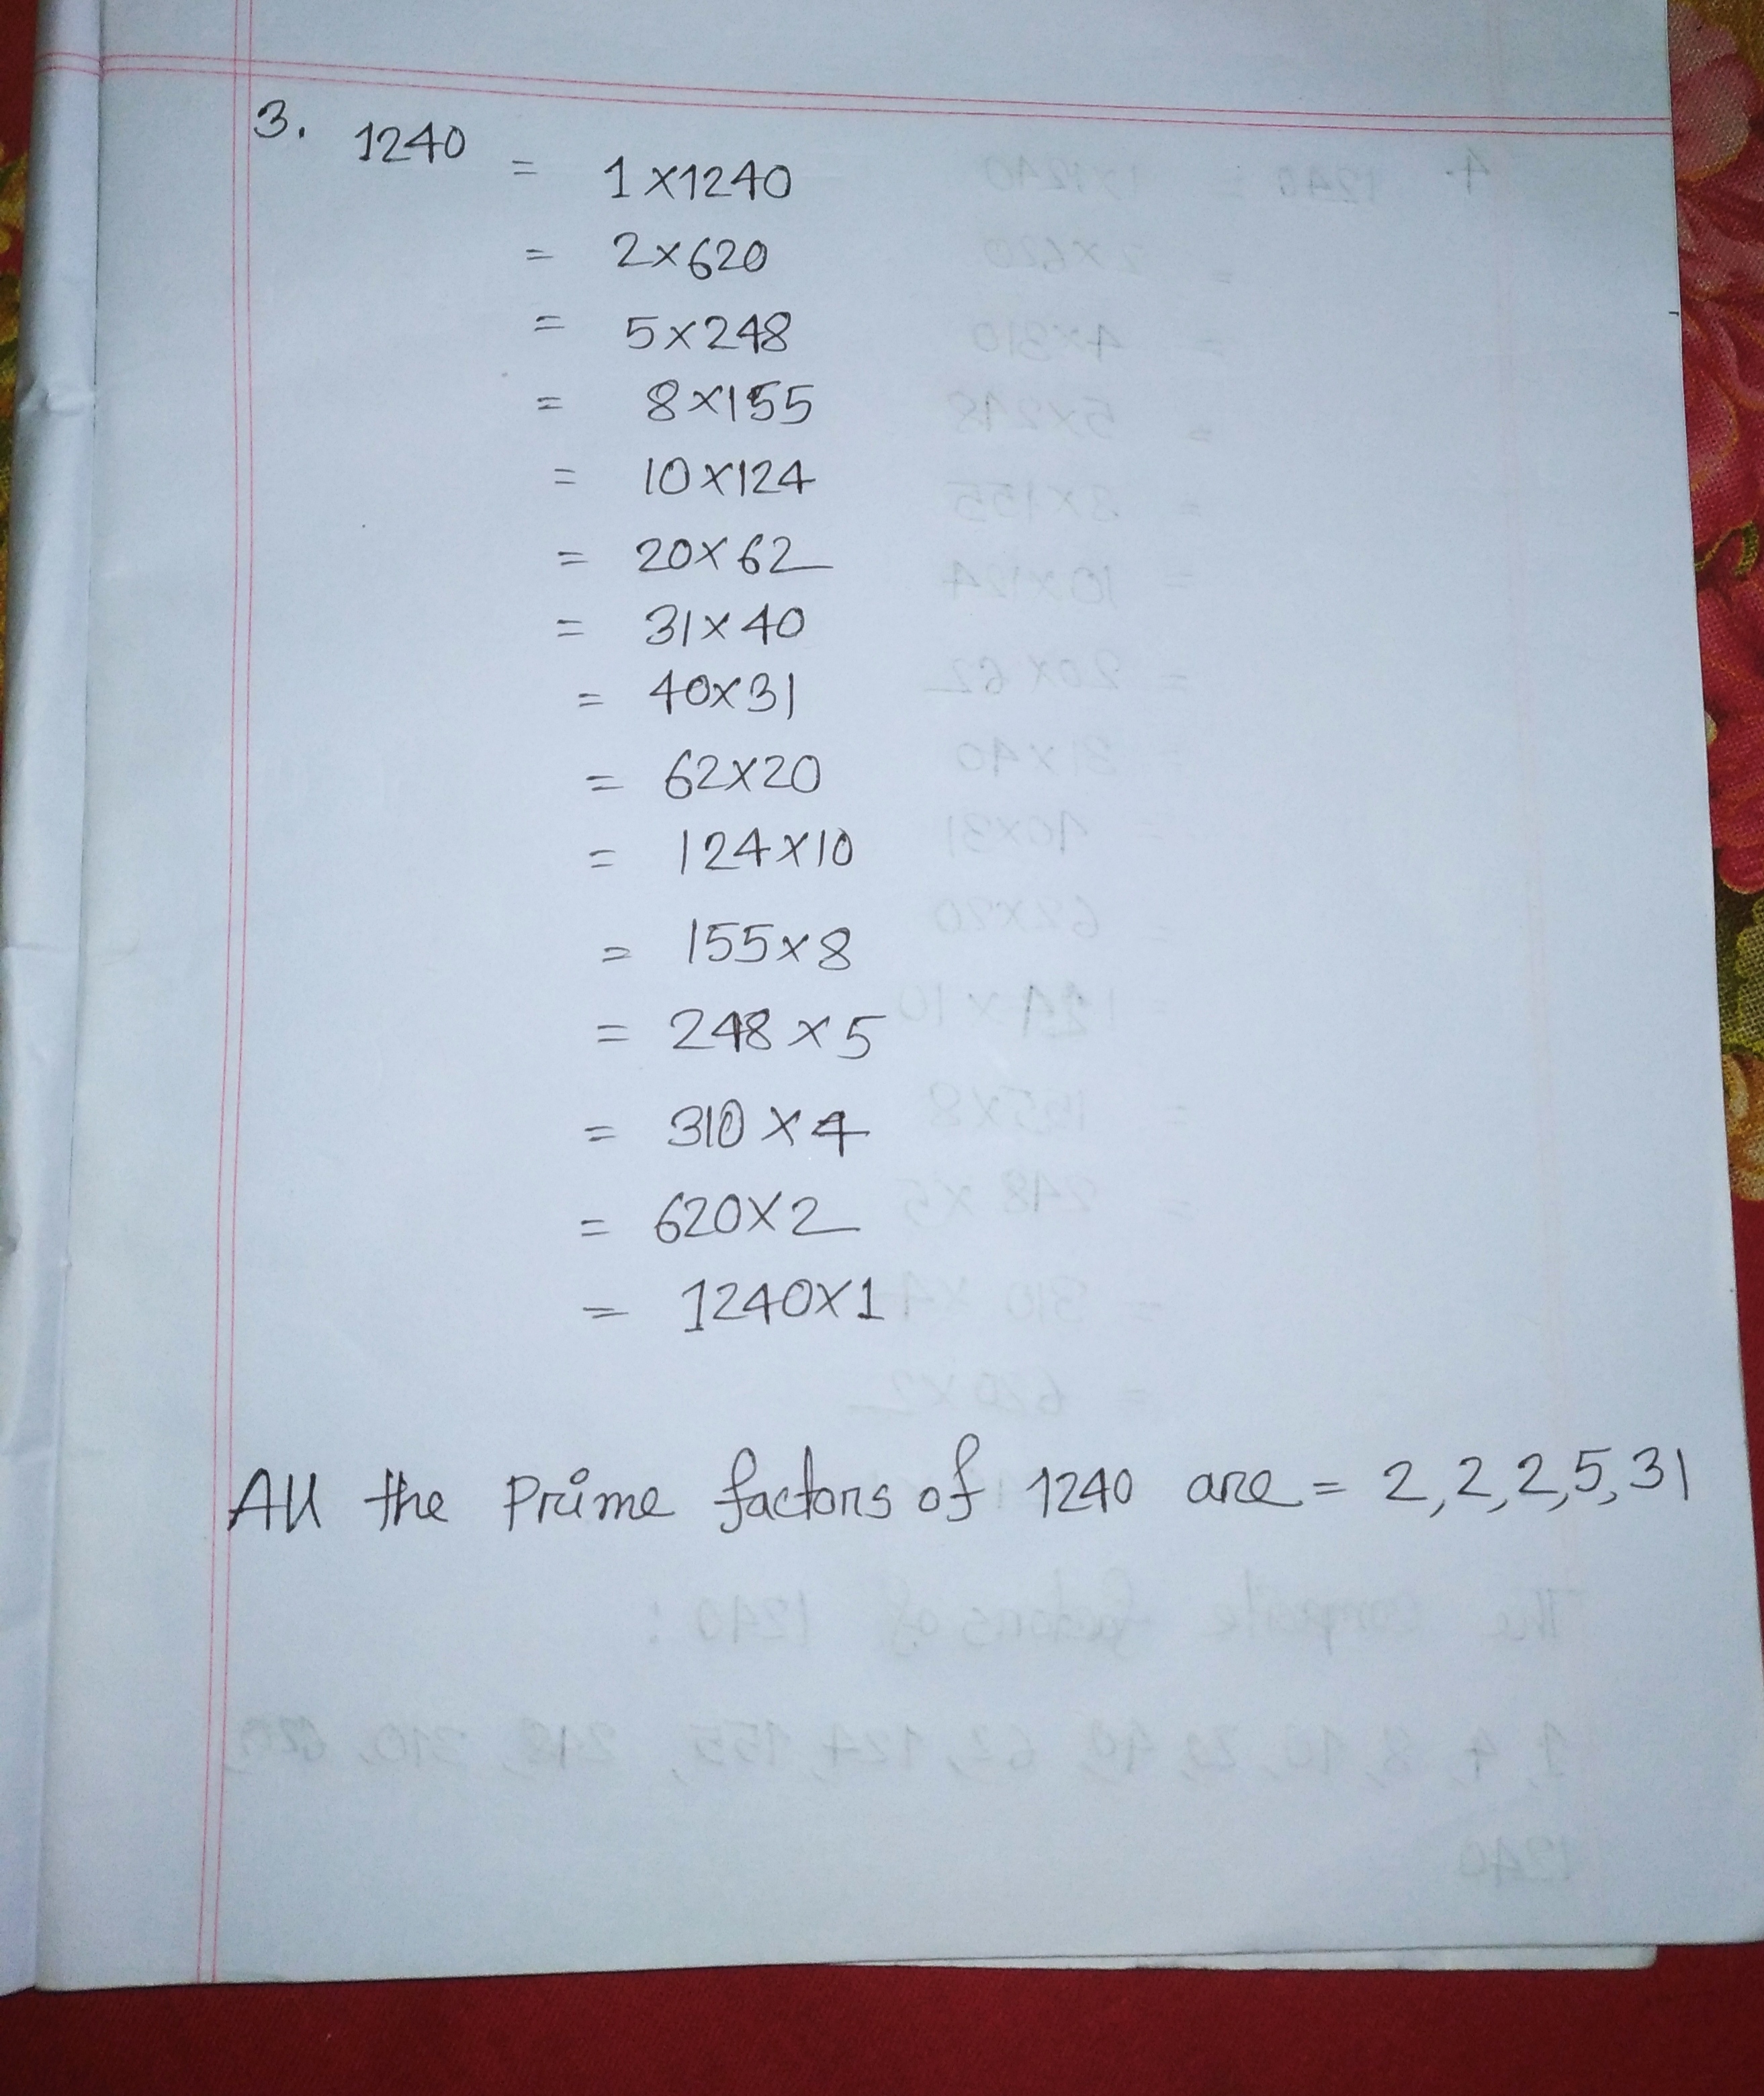 3. 1240 = 1×1240
= 2×620
= 5×248
= 8×155
= 10×124
= 20×62
= 31×40
= 40×31
= 62×20
= 124×10
= 155×8
= 248×5
= 310×4
= 620×2
= 1240×1
All the Prime factors of 1240 are = 2,2,2,5,31